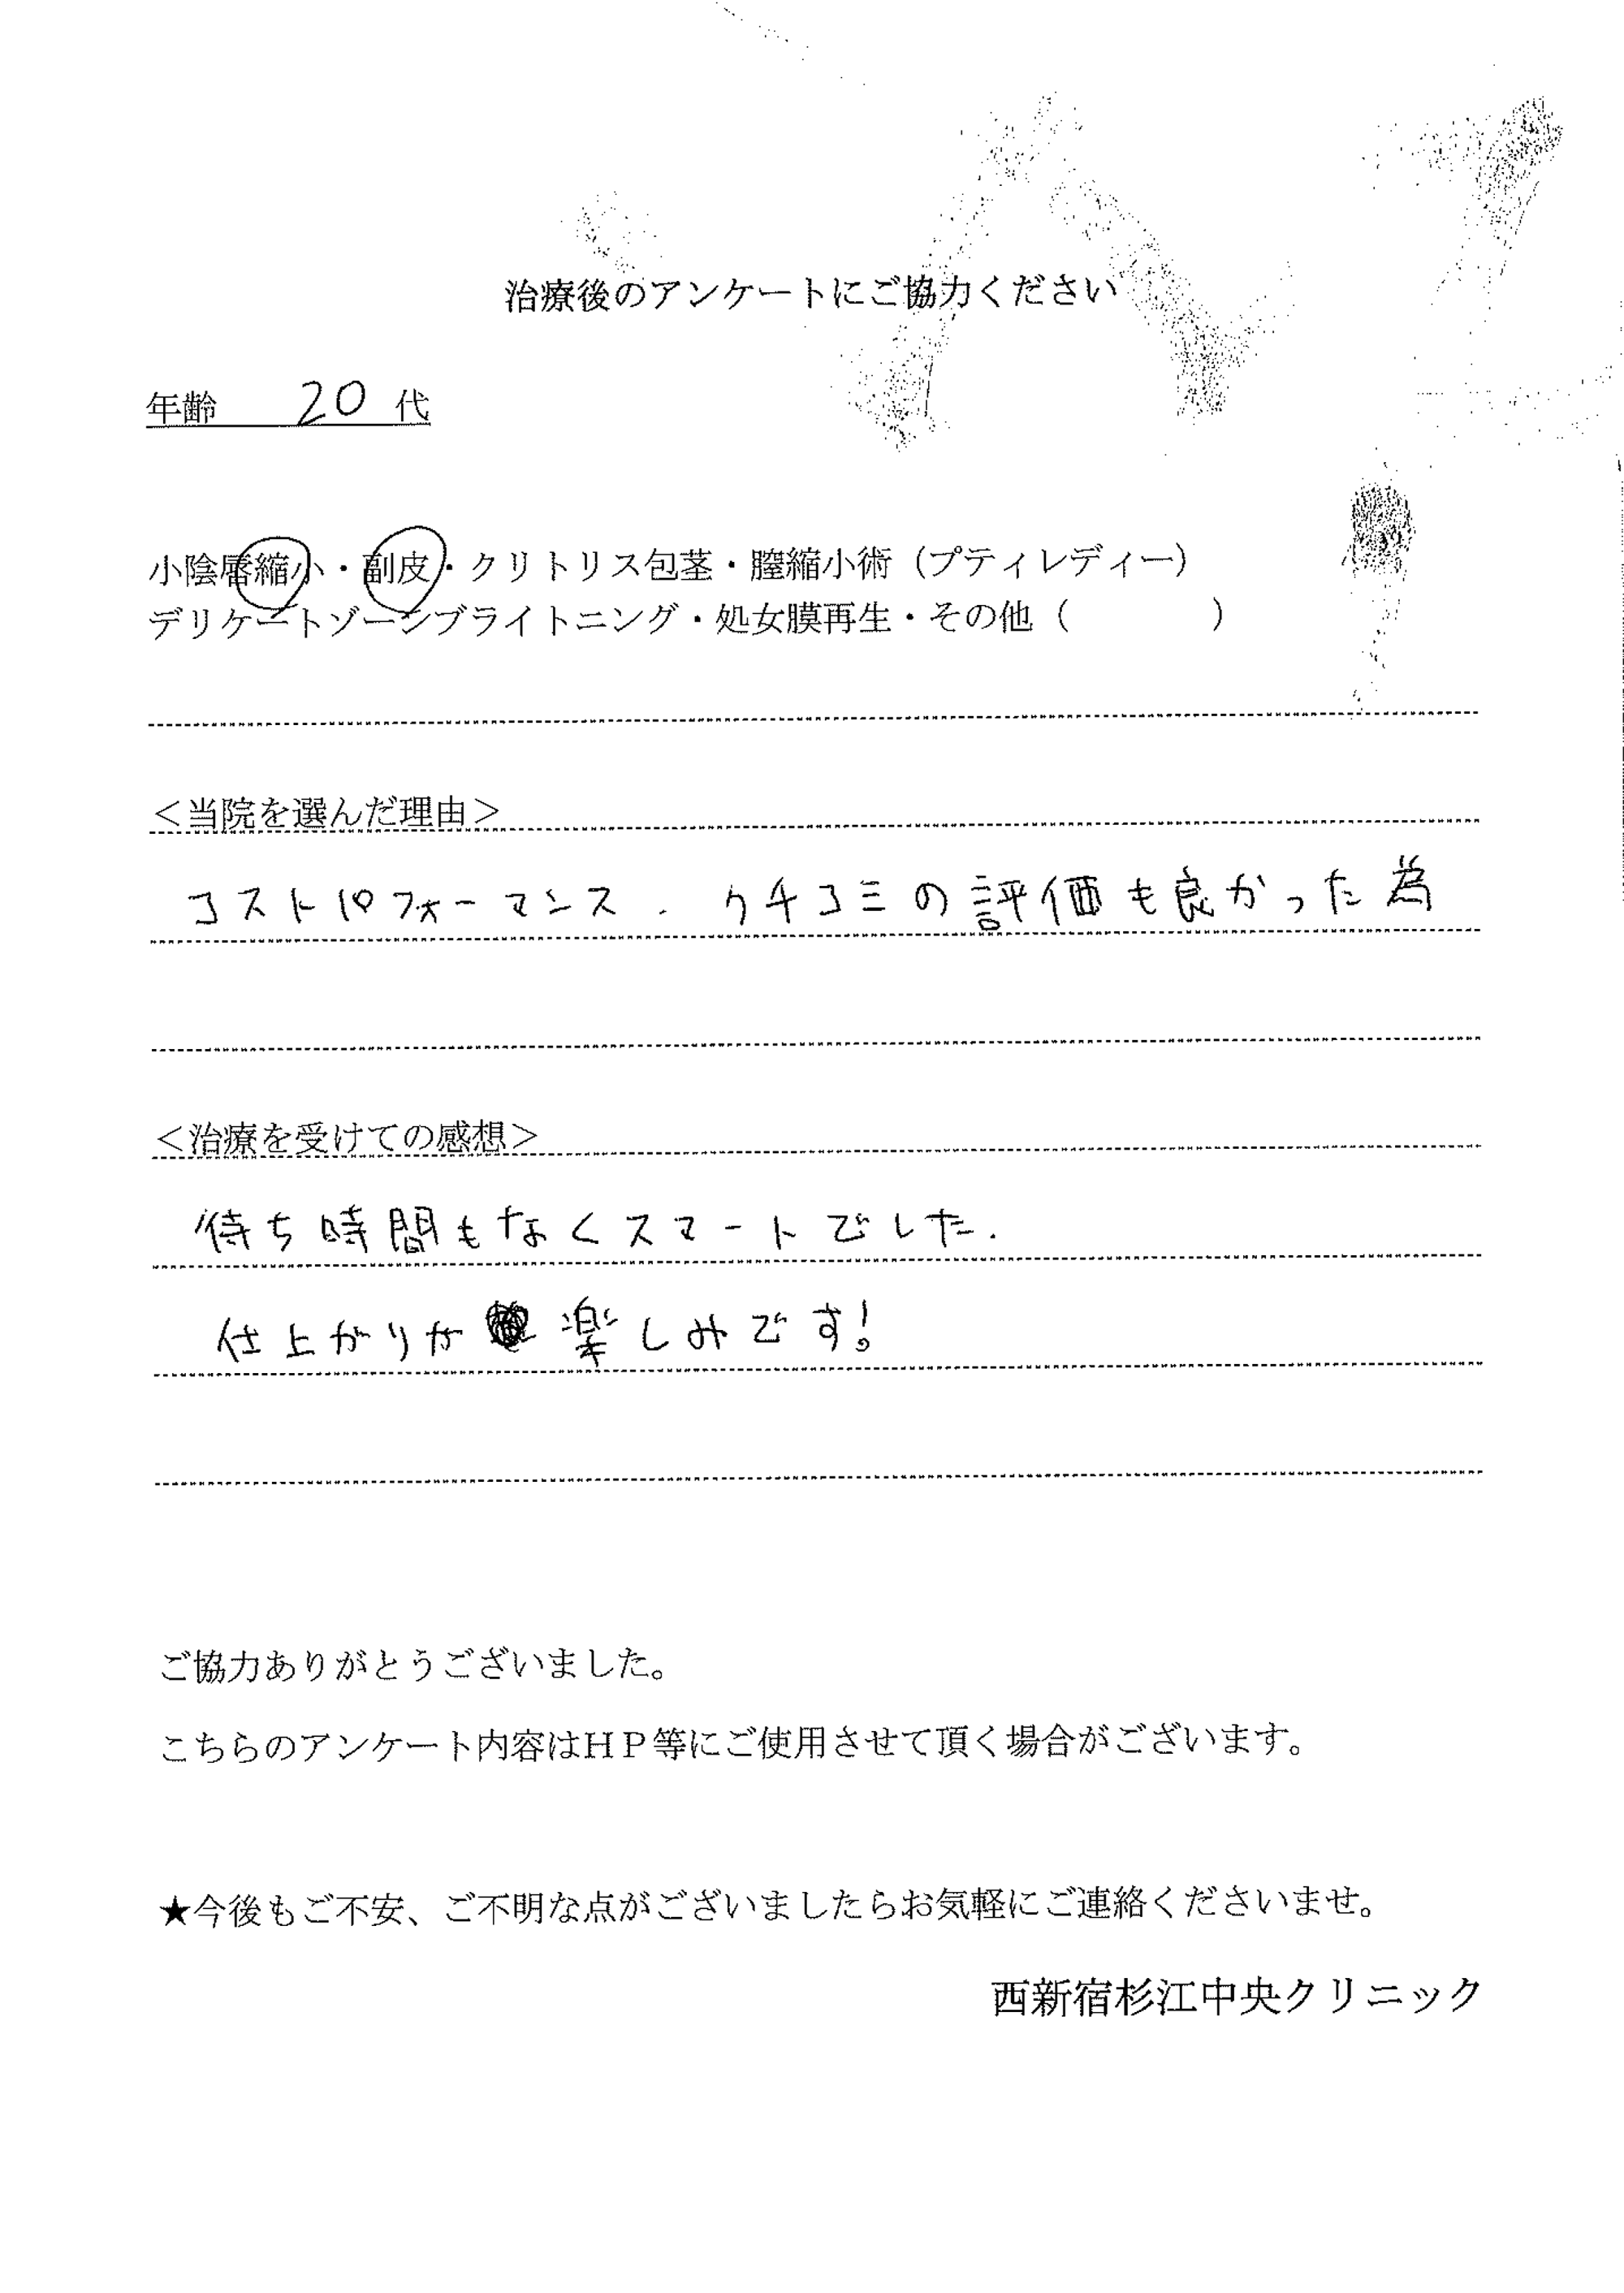 治療後のアンケートにご協力ください
年齢 20 代
小陰唇縮小・副皮・クリトリス包茎・膣縮小術（プティレディー）
デリケートゾーンブライトニング・処女膜再生・その他（　　　　）
＜当院を選んだ理由＞
コストパフォーマンス．クチコミの評価も良かった為
＜治療を受けての感想＞
待ち時間もなくスマートでした．
仕上がりが楽しみです！
ご協力ありがとうございました。
こちらのアンケート内容はＨＰ等にご使用させて頂く場合がございます。
★今後もご不安、ご不明な点がございましたらお気軽にご連絡くださいませ。
西新宿杉江中央クリニック